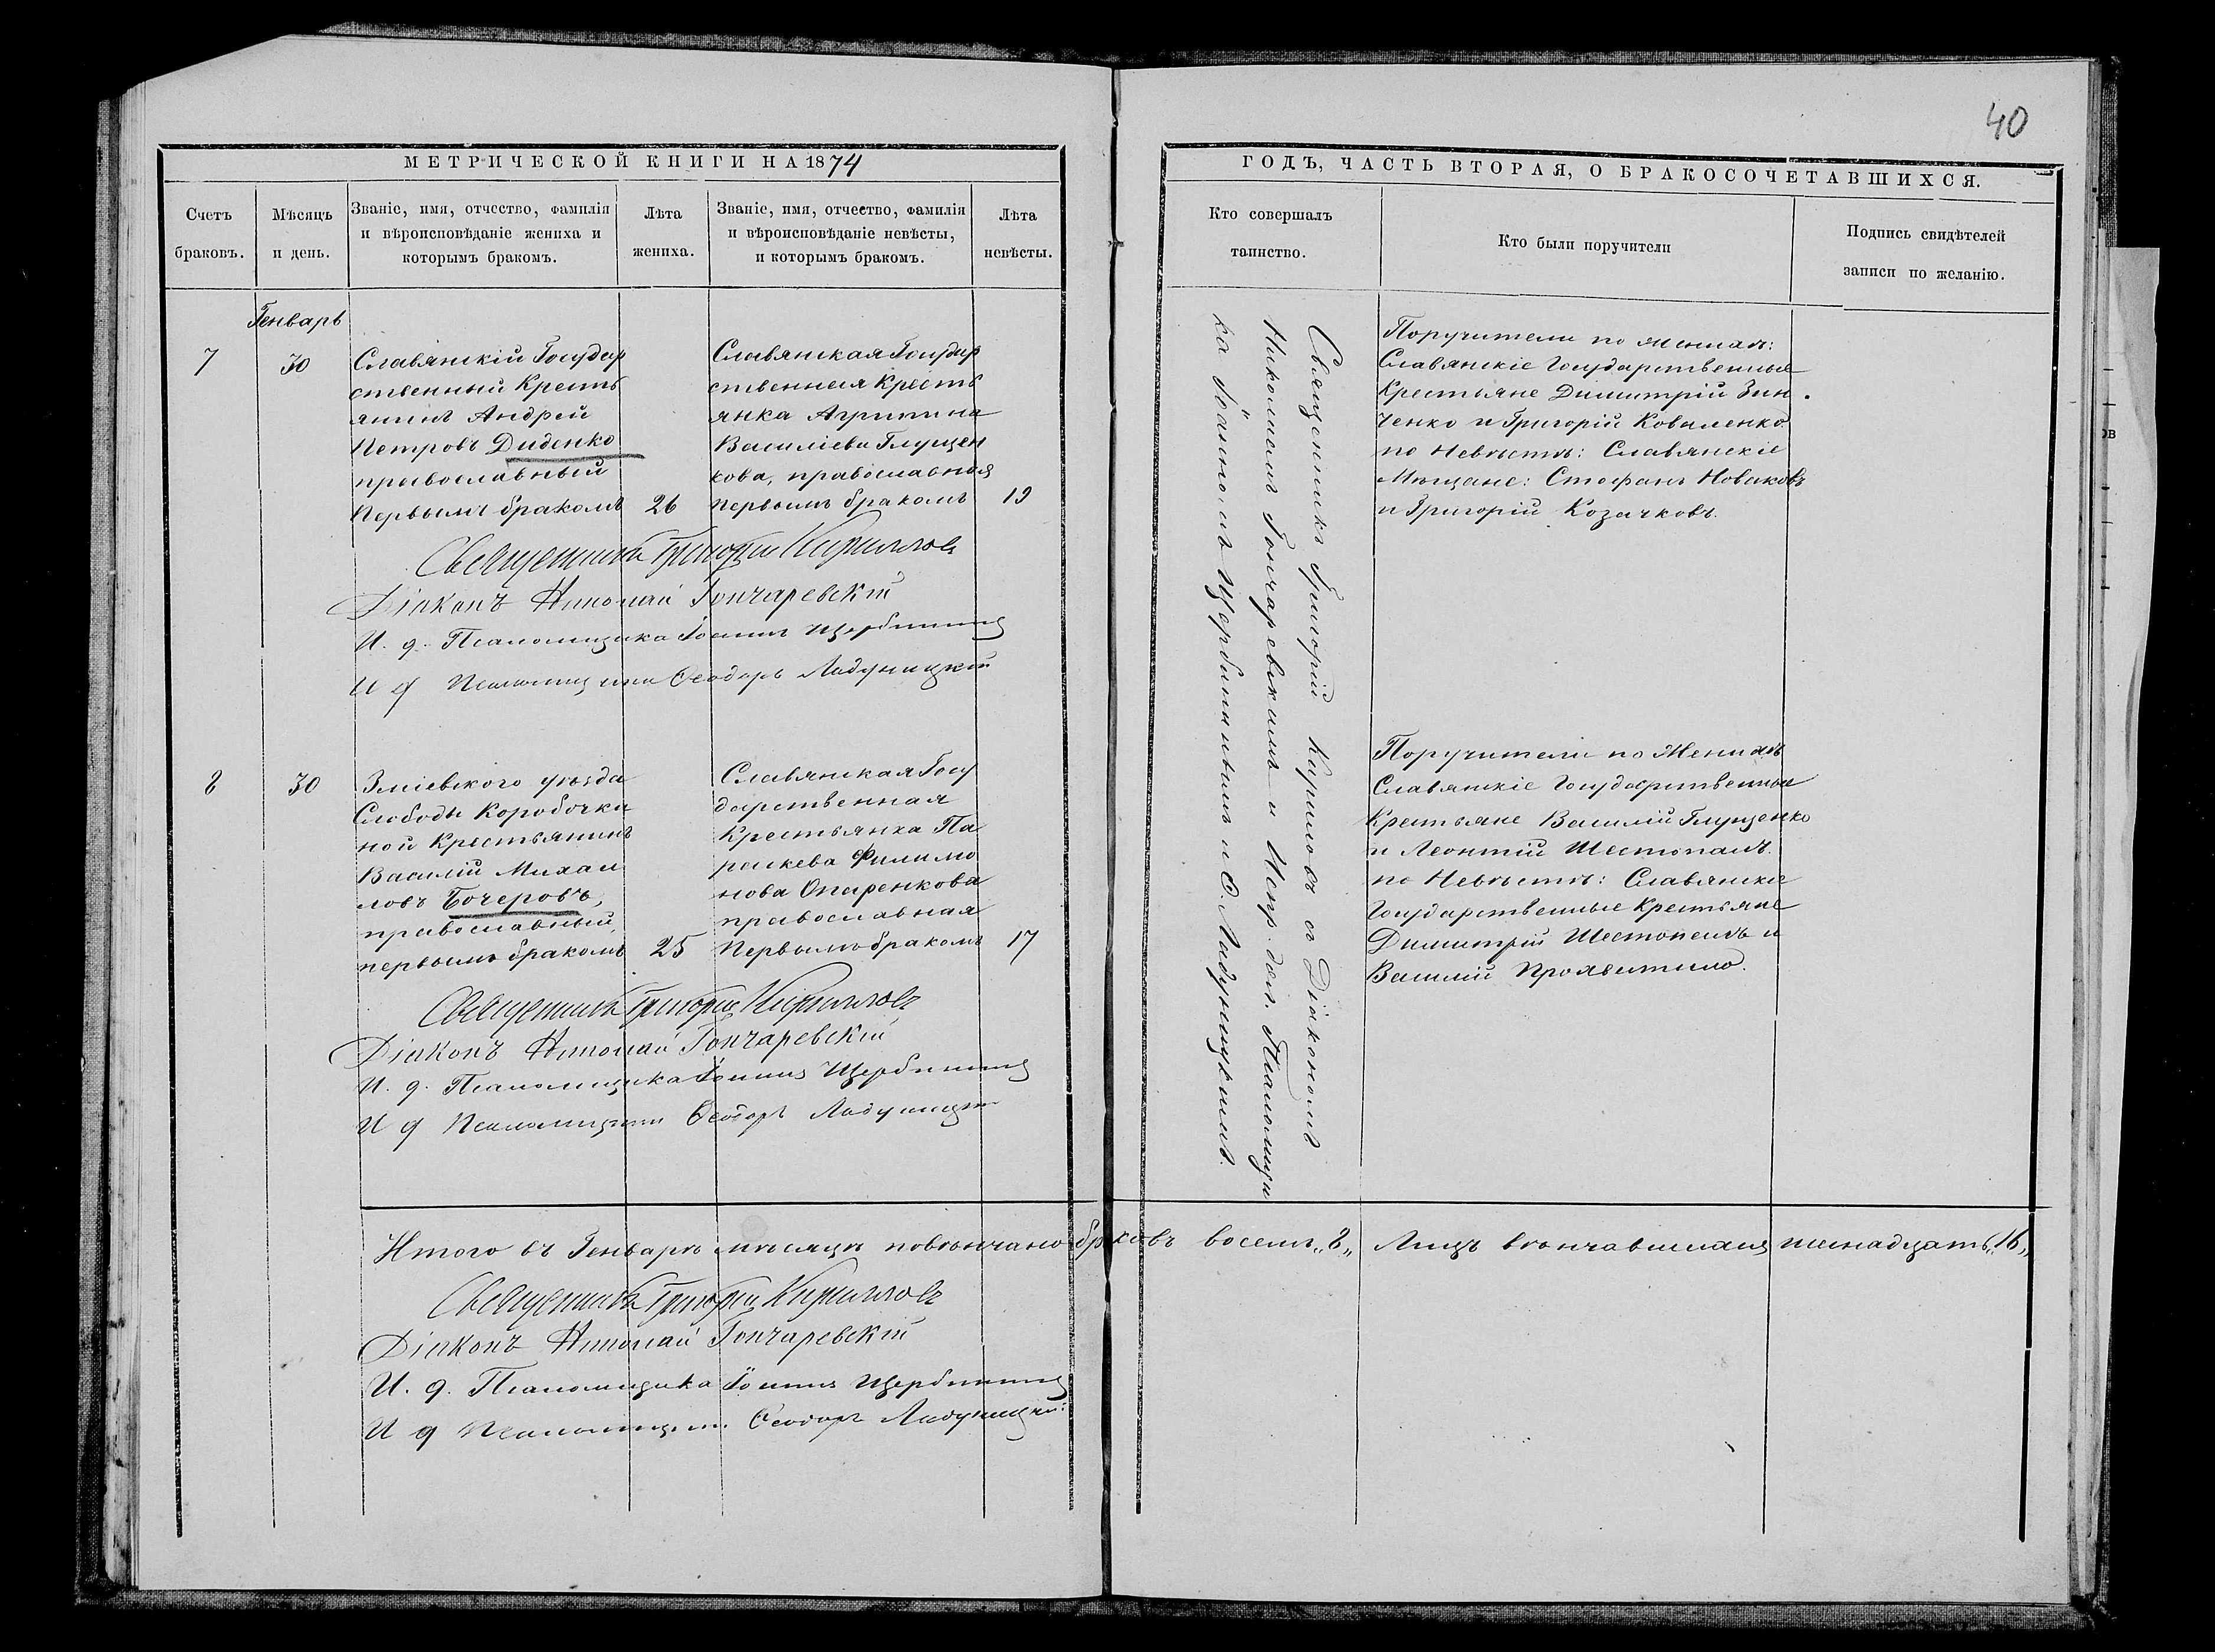 40
МЕТРИЧЕСКОЙ КНИГИ НА 1874
ГОДЪ, ЧАСТЬ ВТОРАЯ, О БРАКОСОЧЕТАВШИХСЯ.
Счетъ
браковъ.
Мѣсяцъ
и день.
Званіе, имя, отчество, фамилія
и вѣроисповѣданіе жениха и
которымъ бракомъ.
Лѣта
жениха.
Званіе, имя, отчество, фамилія
и вѣроисповѣданіе невѣсты,
и которымъ бракомъ.
Лѣта
невѣсты.
Кто совершалъ
таинство.
Кто были поручители
Подпись свидѣтелей
записи по желанію.
Генварь
7
30
Славянскій Государ
ственный Кресть
янинъ Андрей
Петровъ Диденко
православный
Первымъ бракомъ
26
Славянская Государ
ственная Кресть
янка Агрипина
Василіева Глущен
кова, православная
первымъ бракомъ
19
Священникъ Григорій Кирилловъ
Діаконъ Николай Гончаревскій
И. д. Псаломщика Іоаннъ Щербининъ
И д Псаломщика Ѳеодоръ Ладуницкій
8
30
Зміевского уѣзда
Слободы Коробочки
ной Крестьянинъ
Василій Михаи
ловъ Бочеровъ,
православный,
первымъ бракомъ
25
Славянская Госу
дарственная
Крестьянка Па
раскева Филимо
нова Опаренкова
православная
Первымъ бракомъ
17
Священникъ Григорій Кирилловъ
Діаконъ Николай Гончаревскій
И. д. Псаломщика Іоаннъ Щербининъ
И д Псаломщика Ѳеодоръ Ладуницкій
Священникъ Григорій Кириловъ съ Діакономъ
Николаемъ Гончаревскимъ и Испр. дол. Псаломщи
ка Іоанномъ Щербининымъ и Ѳ. Ладуницкимъ.
Поручители по женихѣ:
Славянскіе Государственные
Крестьяне Димитрій Зин
ченко и Григорій Коваленко
по Невѣстѣ: Славянскіе
Мѣщане: Стефанъ Новаковъ
и Григорій Козачковъ.
Поручители по Женихѣ
Славянскіе Государственные
Крестьяне Василій Глущенко
и Леонтій Шестопалъ.
по Невѣстѣ: Славянскіе
Государственные Крестьяне
Димитрій Шестопалъ и
Василій
Итого въ Генварѣ мѣсяцѣ повѣнчано браковъ восемь „8„ Лицъ вѣнчавшихся шестнадцать „16„
Священникъ Григорій Кирилловъ
Діаконъ Николай Гончаревскій
И. д. Псаломщика Іоаннъ Щербининъ
И д Псаломщика Ѳеодоръ Ладуницкій